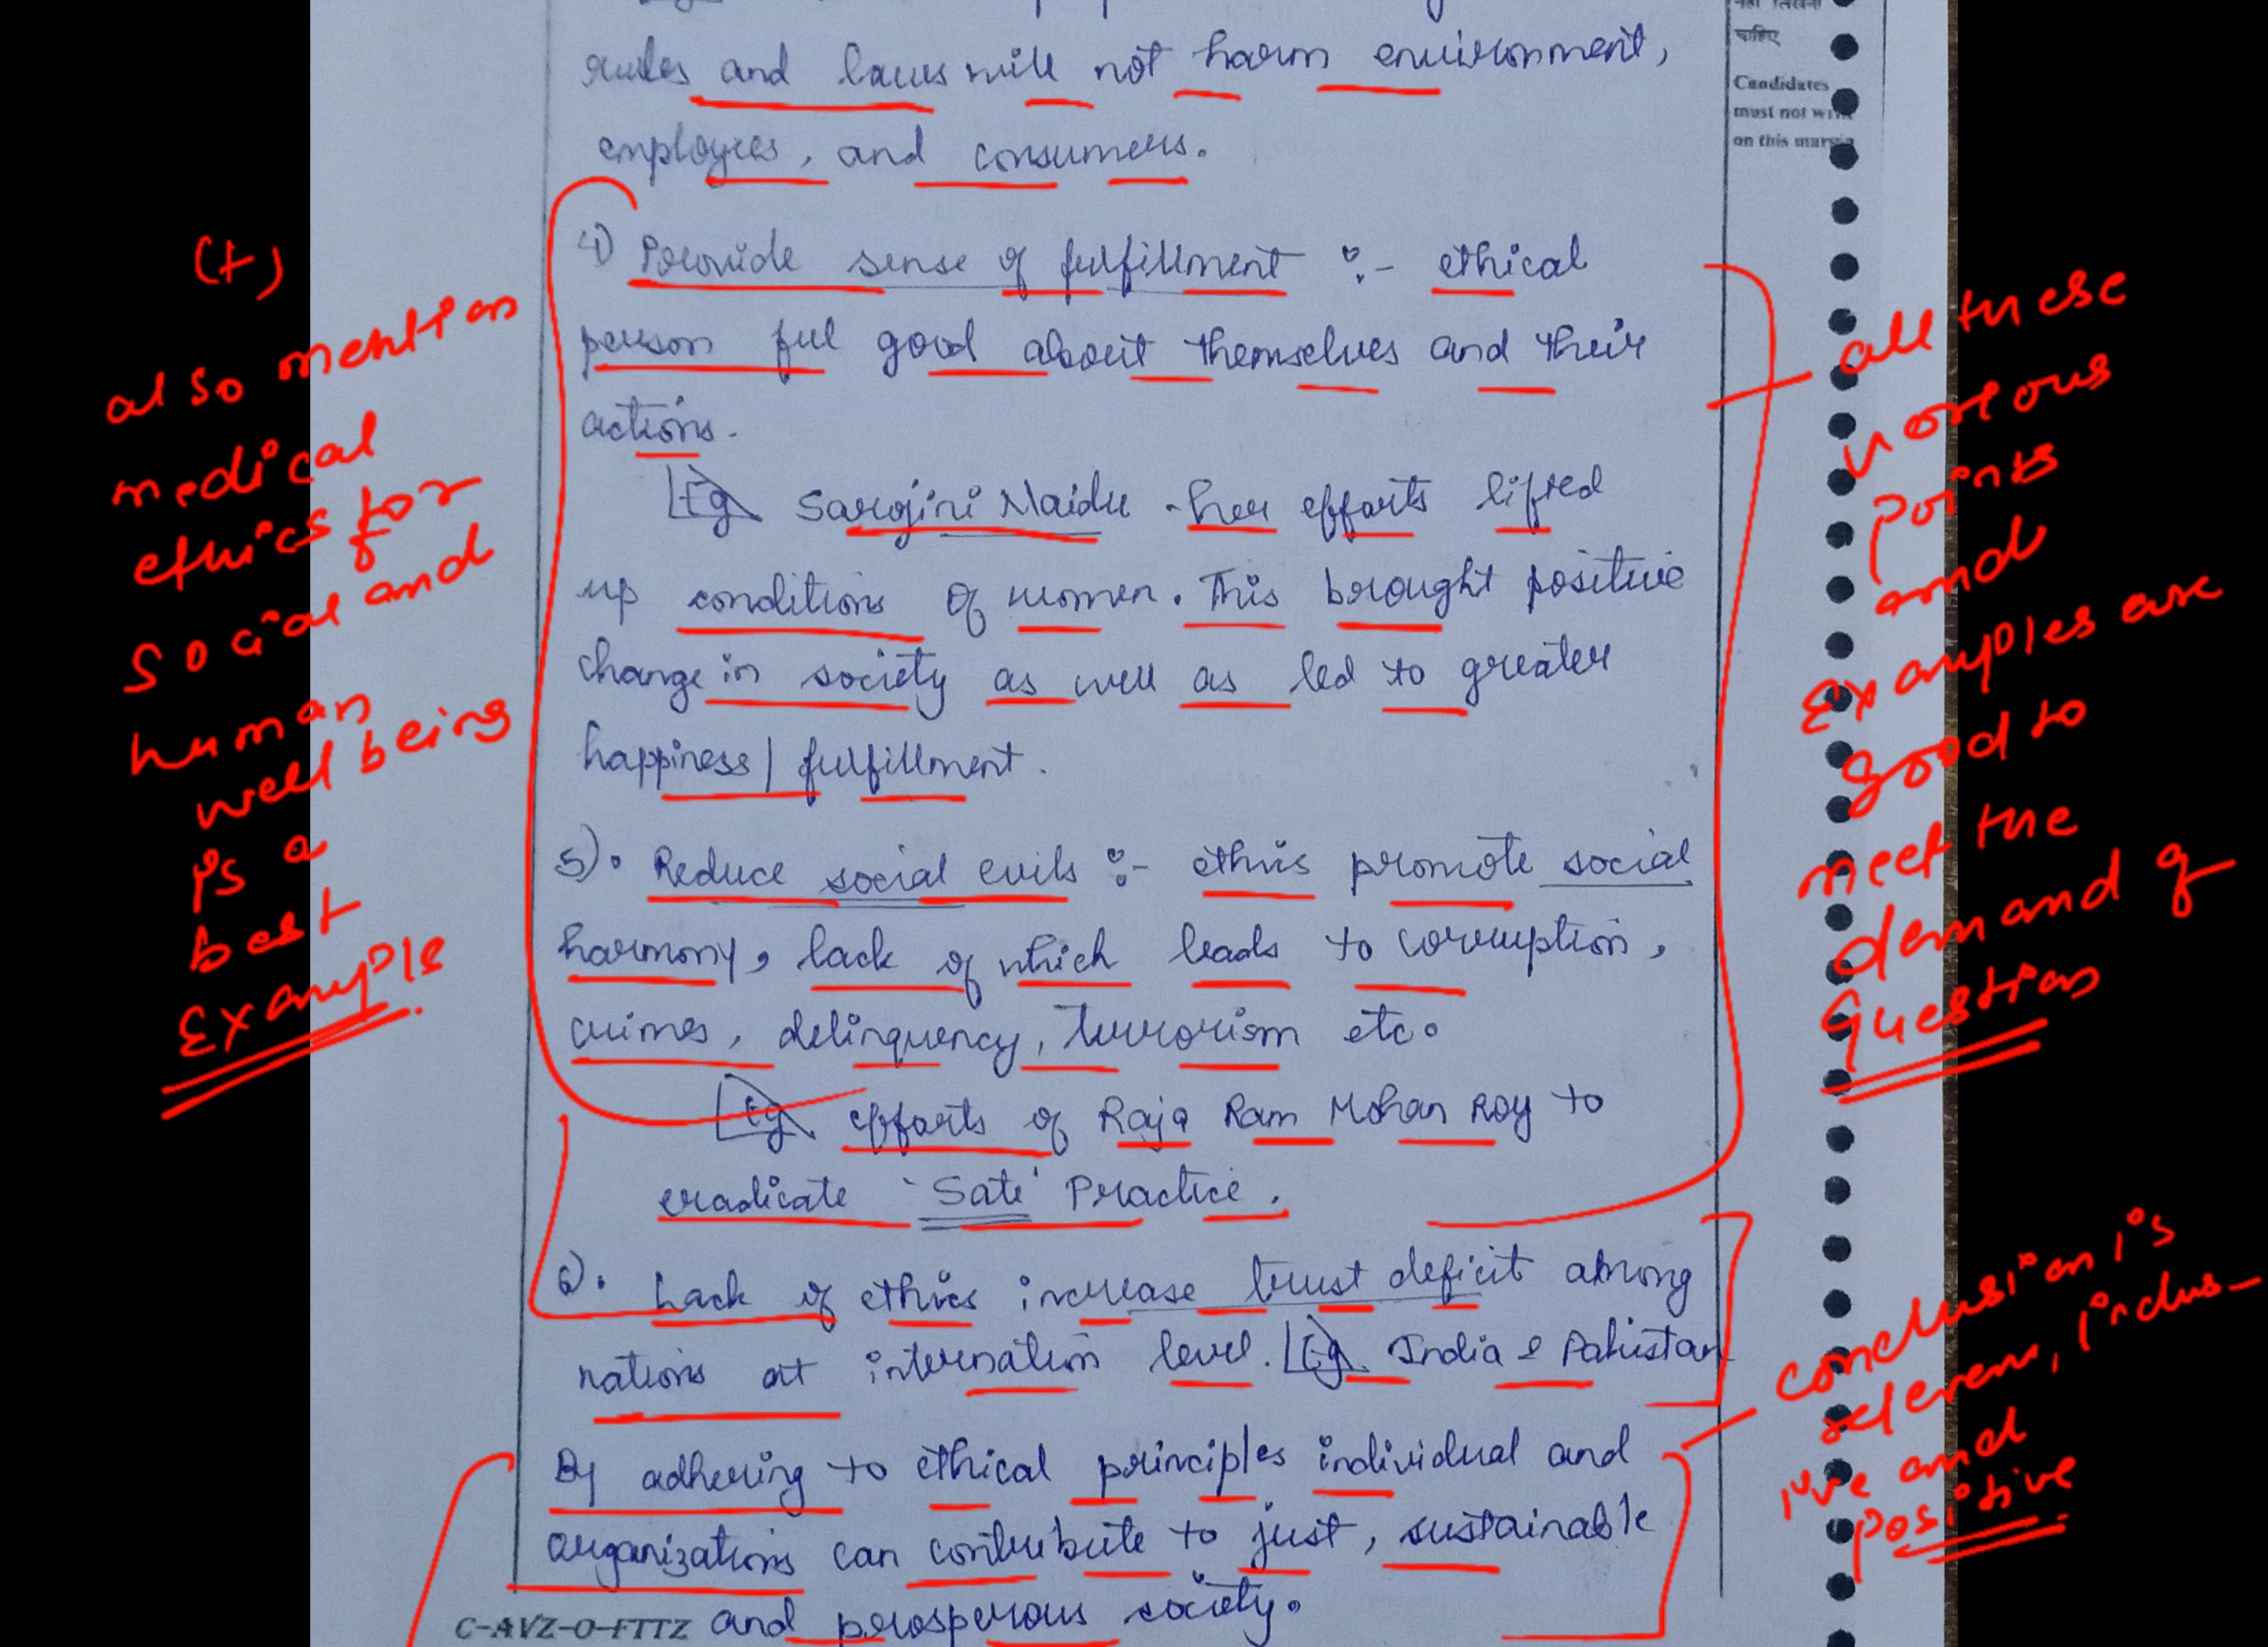 rules and laws will not harm environment,
employees, and consumers.
4) Provide sense of fulfillment :- ethical
person feel good about themselves and their
actions.
Eg Sarojini Naidu - her efforts lifted
up conditions of women. This brought positive
change in society as well as led to greater
happiness/ fulfillment.
5). Reduce social evils :- ethis promote social
harmony, lack of which leads to corruption,
crimes, delinquency, terrorism etc.
Eg efforts of Raja Ram Mohan Roy to
eradicate 'Sate' Practice.
6). Lack of ethics increase trust deficit among
nations at internation level. Eg. India & Pakistan
By adhering to ethical principles individual and
organizations can contribute to just, sustainable
and prosperous society.
C-AVZ-O-FTTZ
(+)
also mention
medical
ethics for
social and
human
well being
is a
best
Example
चाहिए
Candidates
must not
on this
all these
points
and
Examples are
good to
meet the
demand of
Question
conclusion is
relevant, inclus-
ive and
positive